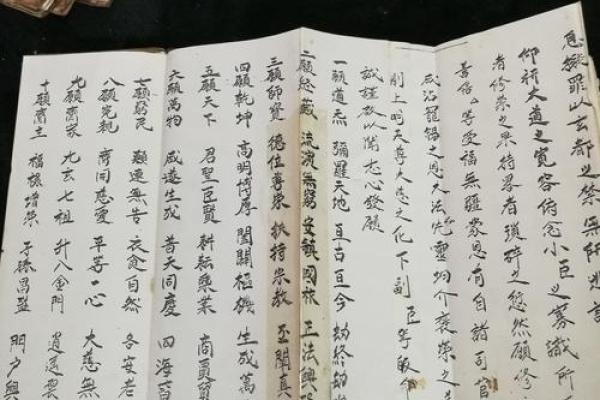 罪以玄都之禁宗師
仰祈太道之寬容俯念小臣之寡識所
者修崇之果特畧者瑣碎之愆然願修
善信等受福無疆蒙恩有自諸司官
咸沾羅錫之恩大法靈均介褒榮之
則上明天尊大慈之化下副臣等皈命
誠謹啟以聞志心發願
一願道炁彌羅天地亘古亘今劫終劫
二願流演無窮安鎮國祚正法興
三願師資德位尊崇扶持宗教丕闡真
四願乾坤高明博厚闔闢樞機生成萬
五願天下君聖臣賢耕耘樂業商賈貿
六願萬物咸遂生成普天同慶四海
七願窮民顛連無告衣食自然各安老
八願冤親齊同慈愛平等一心大慈無
九願齋家九玄七祖升入金門逍遙
十願齋主福根增崇子孫昌盛門户興